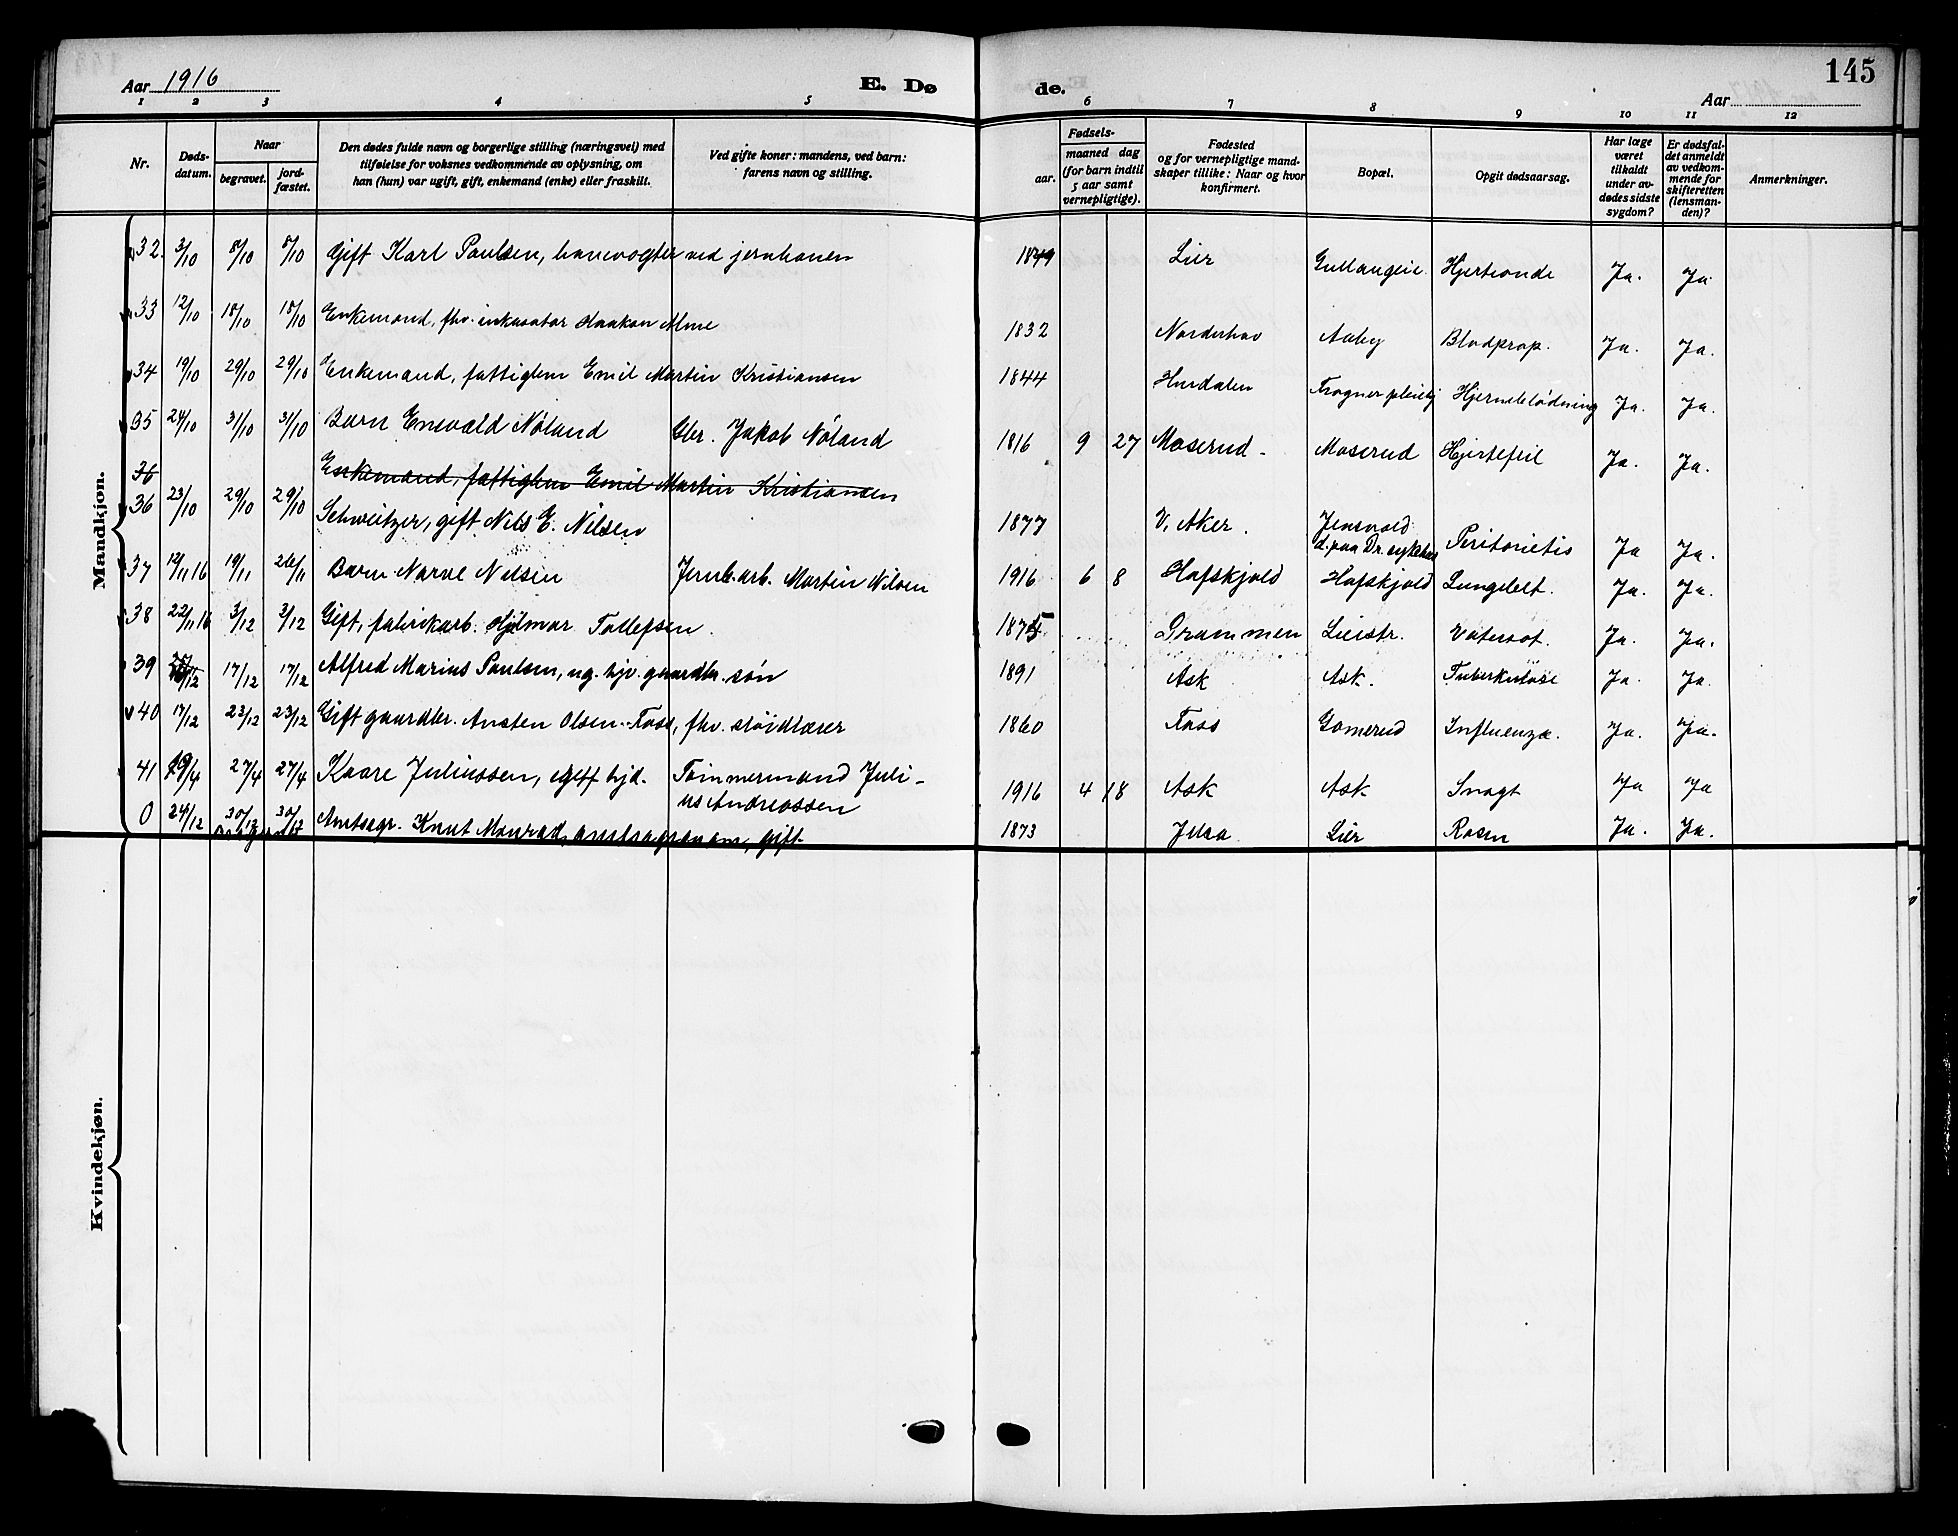 145
Aar 1916
E. Dø
de.
Aar
1 2 3 4 5 6 7 8 9 10 11 12
Nr.
Døds-
datum.
Naar
begravet.
jord-
fæstet.
Den dødes fulde navn og borgerlige stilling (næringsvei) med
tilføielse for voksnes vedkommende av oplysning, om
han (hun) var ugift, gift, enkemand (enke) eller fraskilt.
Ved gifte koner: mandens, ved barn:
farens navn og stilling.
Fødsels-
aar.
maaned dag
(for barn indtil
5 aar samt
vernepligtige).
Fødested
og for vernepligtige mand-
skaper tillike: Naar og hvor
konfirmert.
Bopæl.
Opgit dødsaarsag.
Har læge
været
tilkaldt
under av-
dødes sidste
sygdom?
Er dødsfal-
det anmeldt
av vedkom-
mende for
skifteretten
(lensman-
den)?
Anmerkninger.
Mandkjøn.
32. 3/10 8/10 8/10 Gift Karl Paulsen, banevogter ved jernbanen 1849 Lier Hjerteonde Ja. Ja
33 12/10 18/10 18/10 Enkemand, fhv. inkasator Haakon Alme 1832 Norderhov Aaby Blodprop. Ja. Ja.
34 19/10 29/10 29/10 Enkemand, fattiglem Emil Martin Kristiansen 1844 Hurdalen Frogner pleiehj Hjerneblødning Ja. Ja.
35 24/10 31/10 31/10 Barn Enevald Nøland Gbr. Jakob Nøland 1816 9 27 Moserud - Moserud Hjertefeil Ja. Ja.
36 Enkemand, fattiglem Emil Martin Kristiansen
36 23/10 29/10 29/10 Schweitzer, gift Nils E. Nilsen 1877 V. Aker. Jensvold
d. paa Dr. sykehus Peritonetis Ja Ja.
37 12/11 16 19/11 26/11 Barn Narve Nilsen Jernb.arb. Martin Nilsen 1916 6 8 Hafskjold Hafskjold Lungebet. Ja. Ja.
38 22/11 16 3/12 3/12 Gift, fabrikarb. Hjlmar Tollefsen. 1875 Drammen Lierstr. Vatersot. Ja. Ja.
39 17/12 17/12 Alfred Marius Paulsen, ug. hjv. gaardbr. søn 1891 Ask Ask. Tuberkulose Ja. Ja.
40 17/12 23/12 23/12 Gift gaardbr. Ansten Olsen-Foss, fhv. sløidlærer 1860 Foss Gomerud Influenza. Ja. Ja.
41 19/4 27/4 27/4 Kaare Juliussen, hjd. Tømmermand Juli-
us Andreassen 1916 4 18 Ask Ask Ja Ja
0 24/12 30/12 30/12 Amtsagr. Knut Monrad, amtsagronom, gift 1873 Lier Rosen Ja. Ja.
Kvindekjøn.